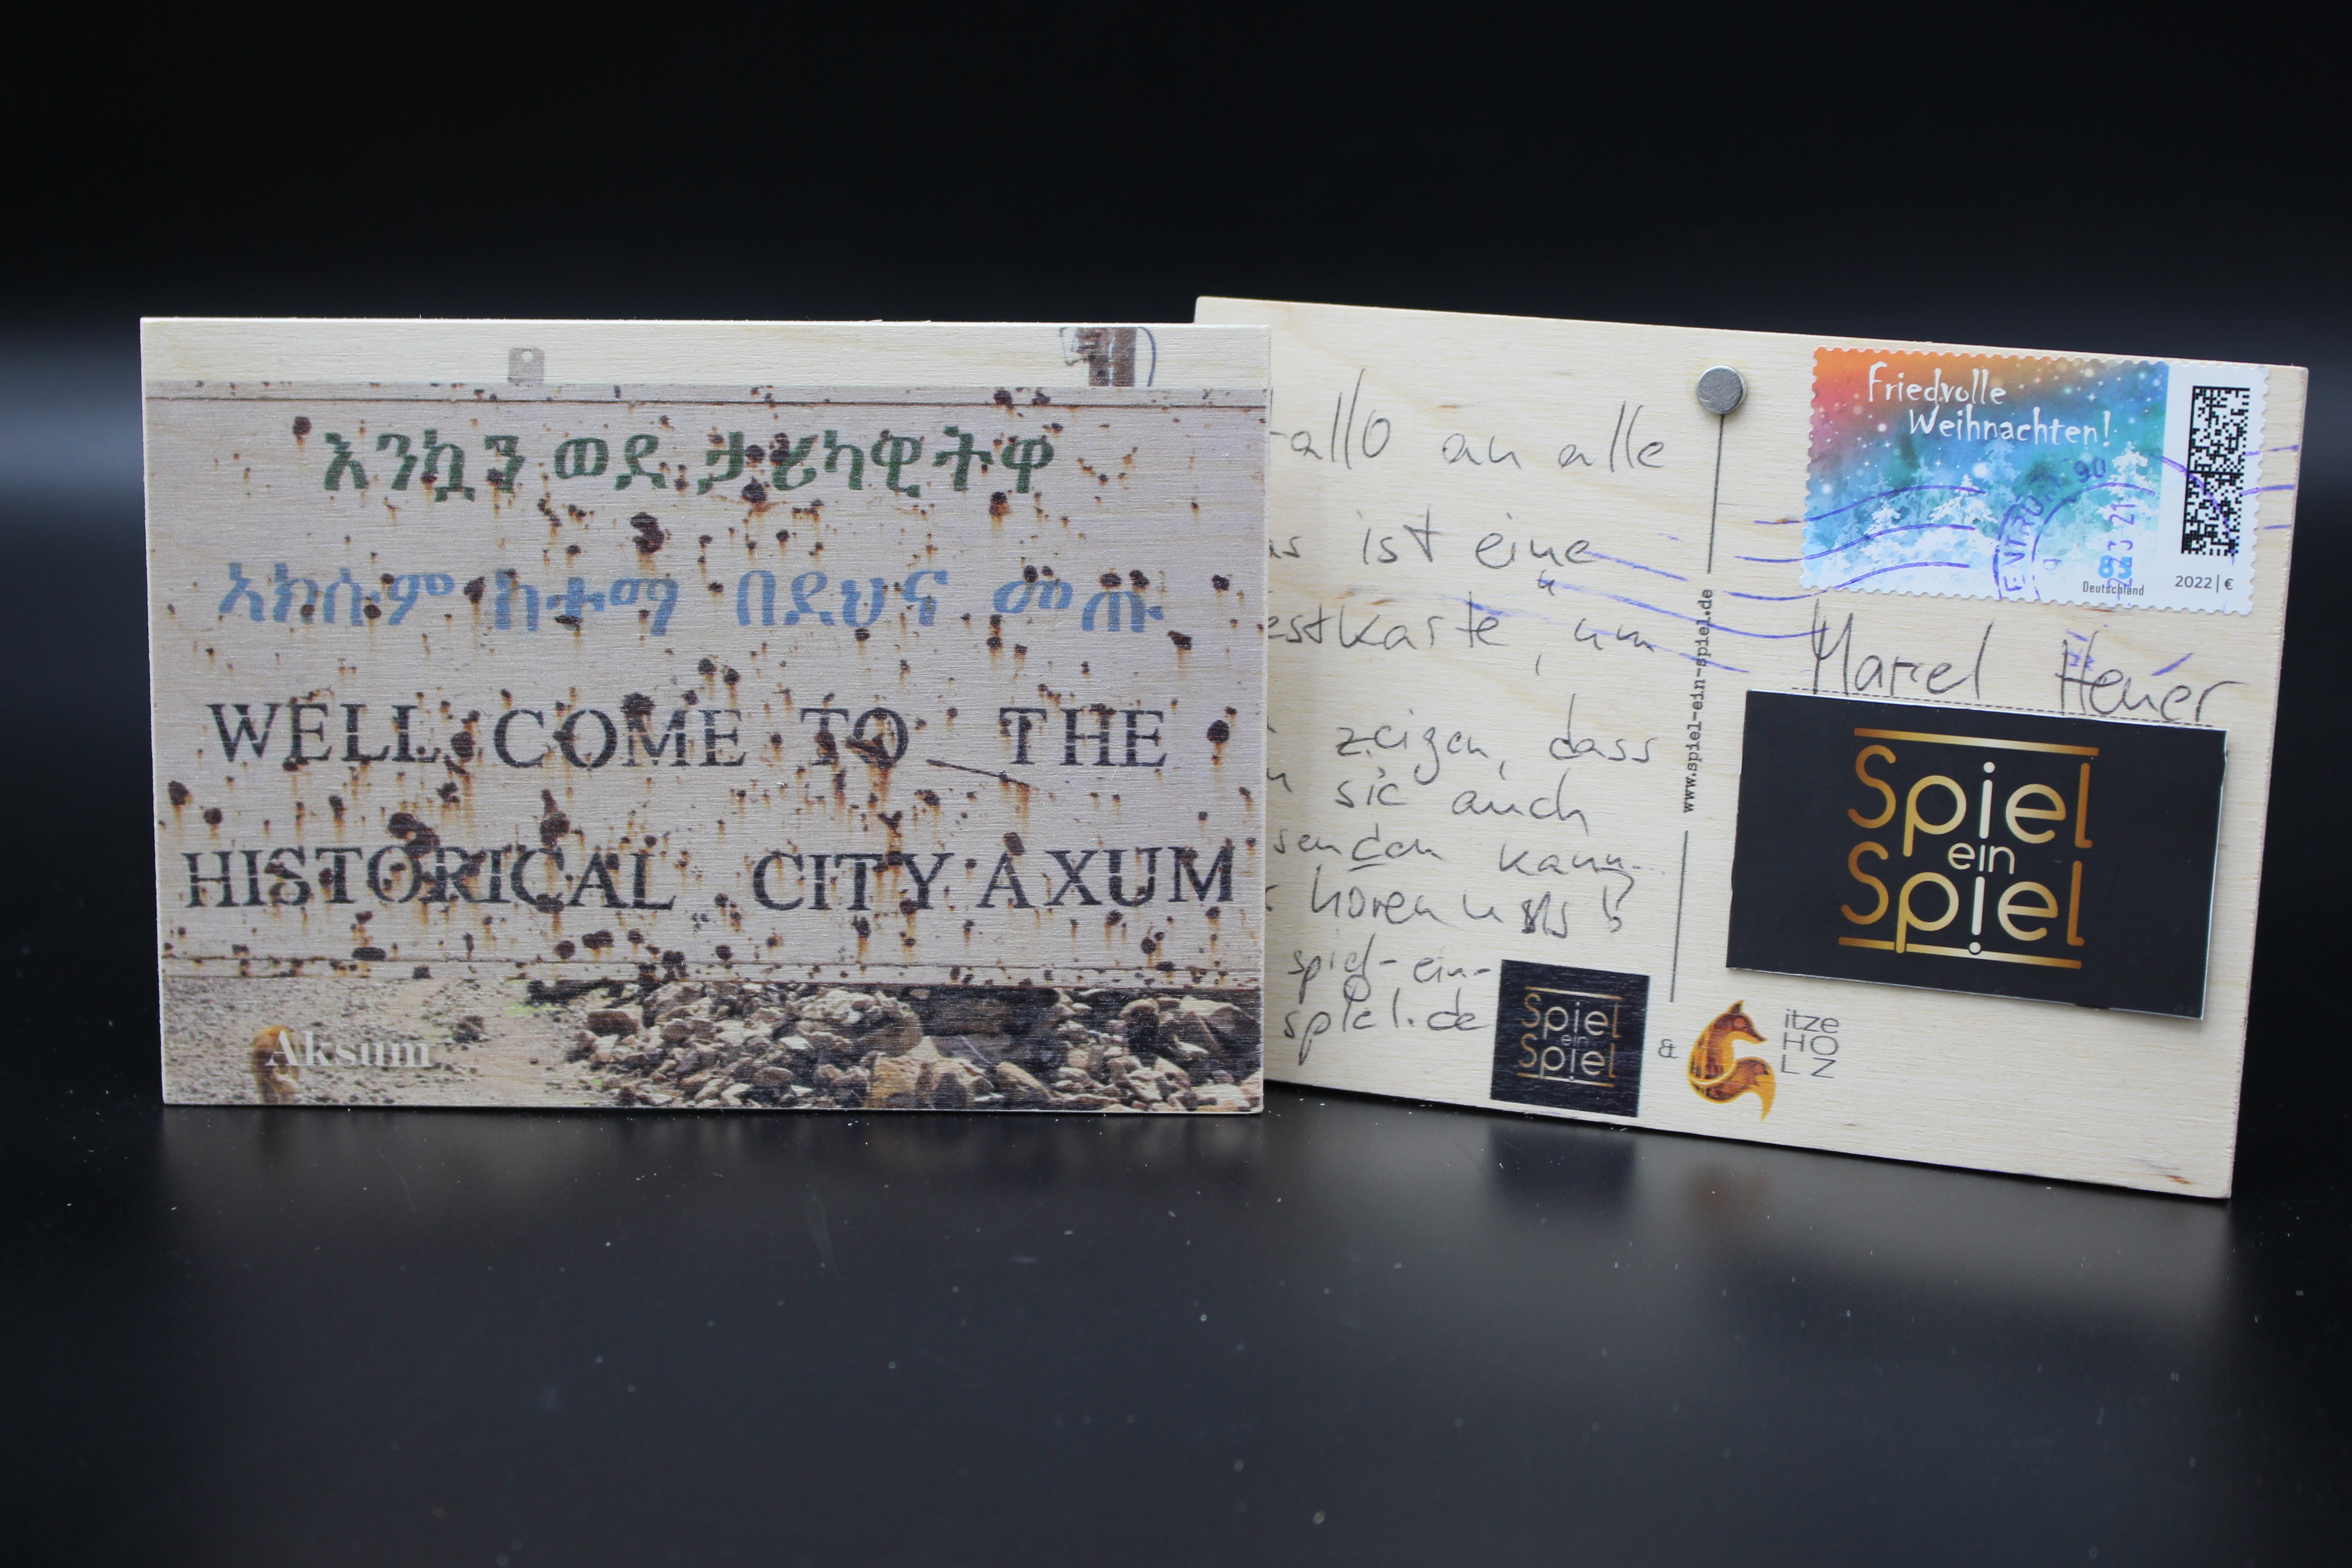 እንኳን ወደ ታሪካዊትዋ
አክሱም ከተማ በደህና መጡ
WELL COME TO THE
HISTORICAL CITY AXUM
Aksum
allo an alle
ist eine
estkarte, um
zeigen, dass
sie auch
senden kann.
hören uns
spiel-ein-
spiel.de
Spiel
ein
Spiel
&
itze
HO
LZ
www.spiel-ein-spiel.de
Friedvolle
Weihnachten!
Deutschland
2022 | €
Marcel Heuer
Spiel
ein
Spiel